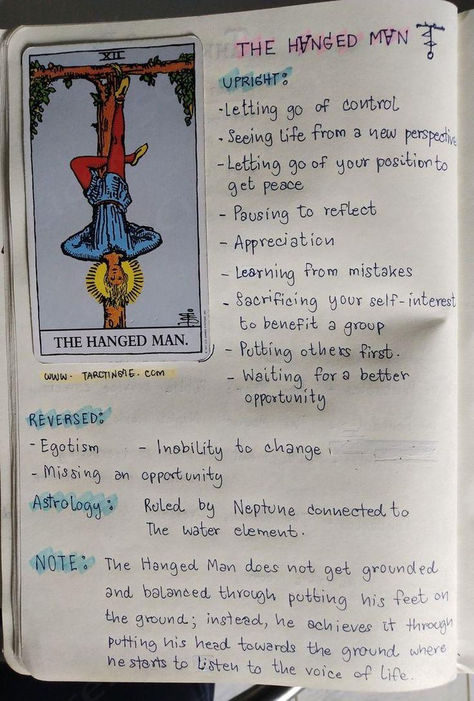 THE HANGED MAN
XII
THE HANGED MAN.
UPRIGHT:
- Letting go of control
- Seeing life from a new perspective
- Letting go of your position to
get peace
- Pausing to reflect
- Appreciation
- Learning from mistakes
- Sacrificing your self-interest
to benefit a group
- Putting others first.
- Waiting for a better
opportunity
REVERSED:
- Egotism - Inability to change
- Missing an opportunity
Astrology: Ruled by Neptune connected to
The water element.
NOTE: The Hanged Man does not get grounded
and balanced through putting his feet on
the ground; instead, he achieves it through
putting his head towards the ground where
he starts to listen to the voice of life.